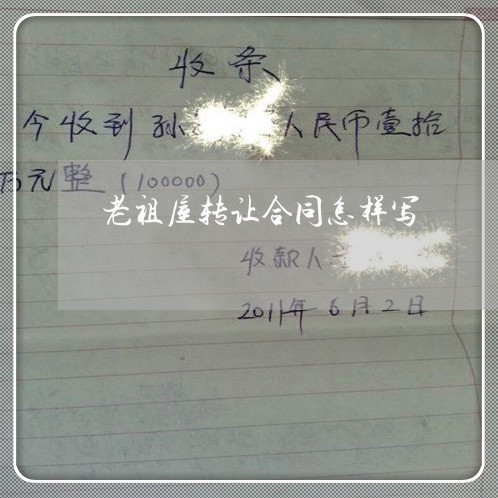 收条
今收到孙 人民币壹拾
万元整(100000)
老祖屋转让合同怎样写
收款人
2011年6月2日